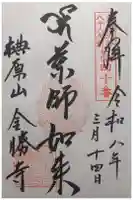 奉拝 令和八年
三月十四日
薬師如来
横原山 金勝寺